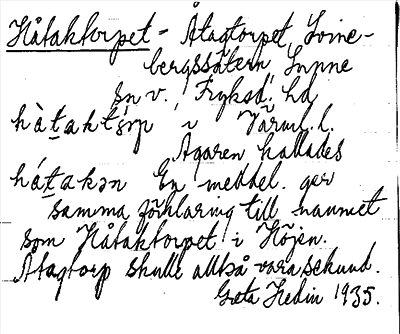 Håtaktorpet - Åtagtorpet, Svine-
bergssätern, Sunne
sn v., Fryksd. hd
hàtaktórp i Värml. l.
Ägaren kallades
hátakən En meddel. ger
samma förklaring till namnet
som Håtaktorpet i Höjen.
Åtagtorp skulle alltså vara sekund.
Greta Hedin 1935.